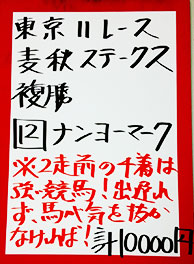 東京11レース
麦秋ステークス
複勝
12 ナンヨーマーク
※2走前の4着は
強い競馬!出遅れ
ず、馬が気を抜か
なければ!計10000円